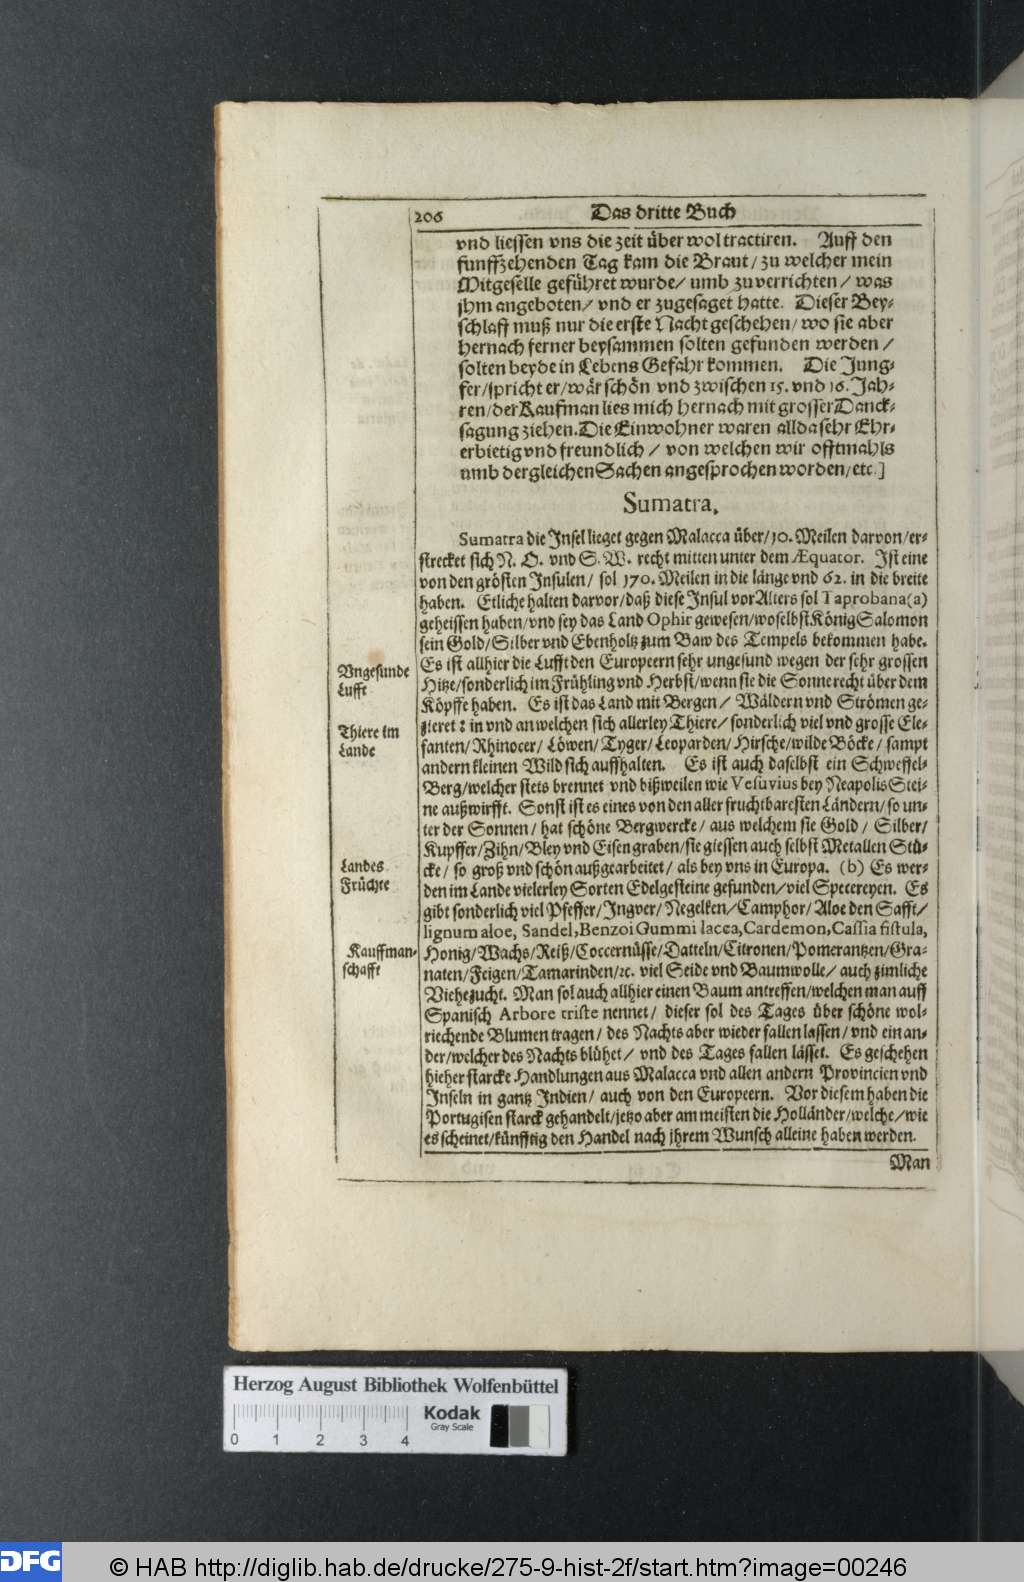 206 Das dritte Buch
vnd liessen vns die zeit über wol tractiren. Auff den
funffzehenden Tag kam die Braut / zu welcher mein
Mitgeselle geführet wurde / umb zuverrichten / was
jhm angeboten / vnd er zugesaget hatte. Dieser Bey-
schlaff muß nur die erste Nacht geschehen / wo sie aber
hernach ferner beysammen solten gefunden werden /
solten beyde in Lebens Gefahr kommen. Die Jung-
fer / spricht er / wär schön vnd zwischen 15. vnd 16. Jah-
ren / der Kaufman lies mich hernach mit grosser Danck-
sagung ziehen. Die Einwohner waren allda sehr Ehr-
erbietig vnd freundlich / von welchen wir offtmahls
umb dergleichen Sachen angesprochen worden / etc.]
Sumatra.
Sumatra die Insel lieget gegen Malacca über / 10. Meilen darvon / er-
strecket sich N. O. vnd S. W. recht mitten unter dem Æquator. Ist eine
von den grösten Insulen / sol 170. Meilen in die länge vnd 62. in die breite
haben. Etliche halten darvor / daß diese Insul vor Alters sol Taprobana (a)
geheissen haben / vnd sey das Land Ophir gewesen / woselbst König Salomon
sein Gold / Silber vnd Ebenholtz zum Baw des Tempels bekommen habe.
Es ist allhier die Lufft den Europeern sehr ungesund wegen der sehr grossen
Vngesunde
Luffe
Hitze / sonderlich im Frühling vnd Herbst / wenn sie die Sonne recht über dem
Köpffe haben. Es ist das Land mit Bergen / Wäldern vnd Strömen ge-
zieret : in vnd an welchen sich allerley Thiere / sonderlich viel vnd grosse Ele-
Thiere im
Lande
fanten / Rhinocer / Löwen / Tyger / Leoparden / Hirsche / wilde Böcke / sampt
andern kleinen Wild sich auffhalten. Es ist auch daselbst ein Schweffel-
Berg / welcher stets brennet vnd bißweilen wie Vesuvius bey Neapolis Stei-
ne außwirfft. Sonst ist es eines von den aller fruchtbaresten Ländern / so un-
ter der Sonnen / hat schöne Bergwercke / aus welchem sie Gold / Silber /
Kupffer / Zihn / Bley vnd Eisen graben / sie giessen auch selbst Metallen Stü-
cke / so groß vnd schön außgearbeitet / als bey vns in Europa. (b) Es wer-
Landes
Früchte
den im Lande vielerley Sorten Edelgesteine gefunden / viel Specereyen. Es
gibt sonderlich viel Pfeffer / Ingver / Negelken / Camphor / Aloe den Safft /
lignum aloe, Sandel, Benzoi Gummi lacca, Cardemon, Cassia fistula,
Honig / Wachs / Reiß / Coccernüsse / Datteln / Citronen / Pomerantzen / Gra-
Kauffman-
schaffe
naten / Feigen / Tamarinden / ꝛc. viel Seide vnd Baumwolle / auch zimliche
Viehezucht. Man sol auch allhier einen Baum antreffen / welchen man auff
Spanisch Arbore triste nennet / dieser sol des Tages über schöne wol-
riechende Blumen tragen / des Nachts aber wieder fallen lassen / vnd ein an-
der / welcher des Nachts blühet / vnd des Tages fallen lässet. Es geschehen
hieher starcke Handlungen aus Malacca vnd allen andern Provincien vnd
Inseln in gantz Indien / auch von den Europeern. Vor diesem haben die
Portugisen starck gehandelt / jetzo aber am meisten die Holländer / welche / wie
es scheinet / künfftig den Handel nach jhrem Wunsch alleine haben werden.
Man
Herzog August Bibliothek Wolfenbüttel
Kodak
Gray Scale
0 1 2 3 4
DFG
© HAB http://diglib.hab.de/drucke/275-9-hist-2f/start.htm?image=00246